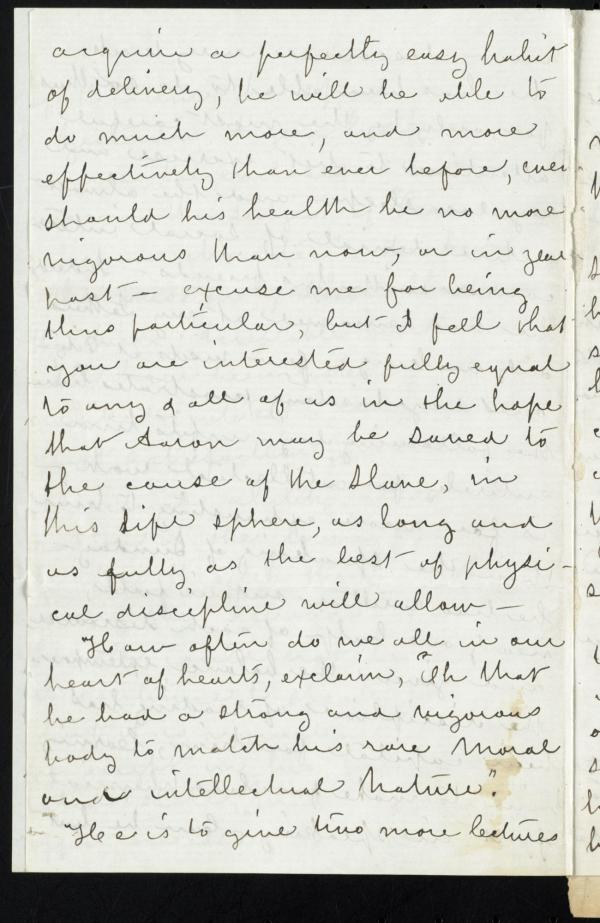 acquire a perfectly easy habit
of delivery, he will be able to
do much more, and more
effectively than ever before, even
should his health be no more
vigorous than now, or in year
past — excuse me for being
thus particular, but I fell that
you are interested fully equal
to any & all of us in the hope
that Aaron may be saved to
the cause of the Slave, in
this sphere, as long and
as fully as the best of physi-
cal discipline will allow —
How often do we all in our
heart of hearts, exclaim, "Oh that
he had a strong and vigorous
body to match his rare Moral
and intellectual Nature".
He is to give two more lectures